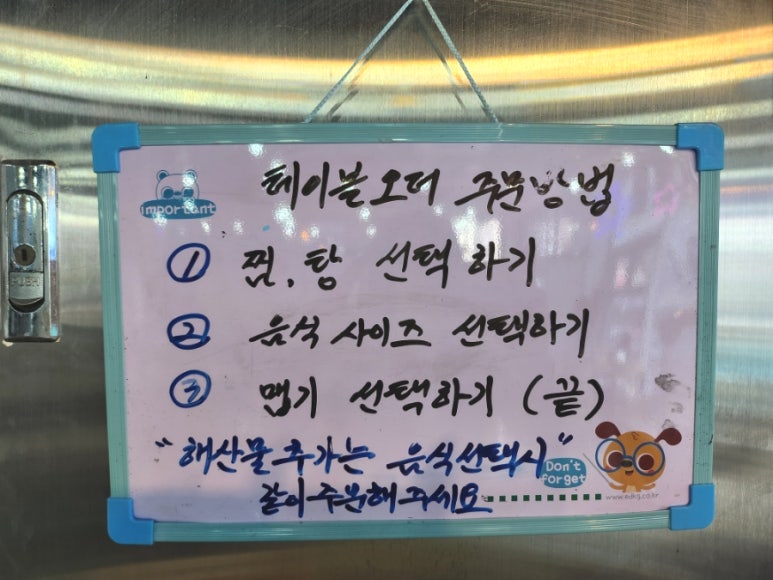 important
테이블오더 주문방법
① 찜, 탕 선택하기
② 음식 사이즈 선택하기
③ 맵기 선택하기 (끝)
"해산물추가는 음식선택시"
같이주문해주세요
Don't
forget
www.edkg.co.kr
PUSH